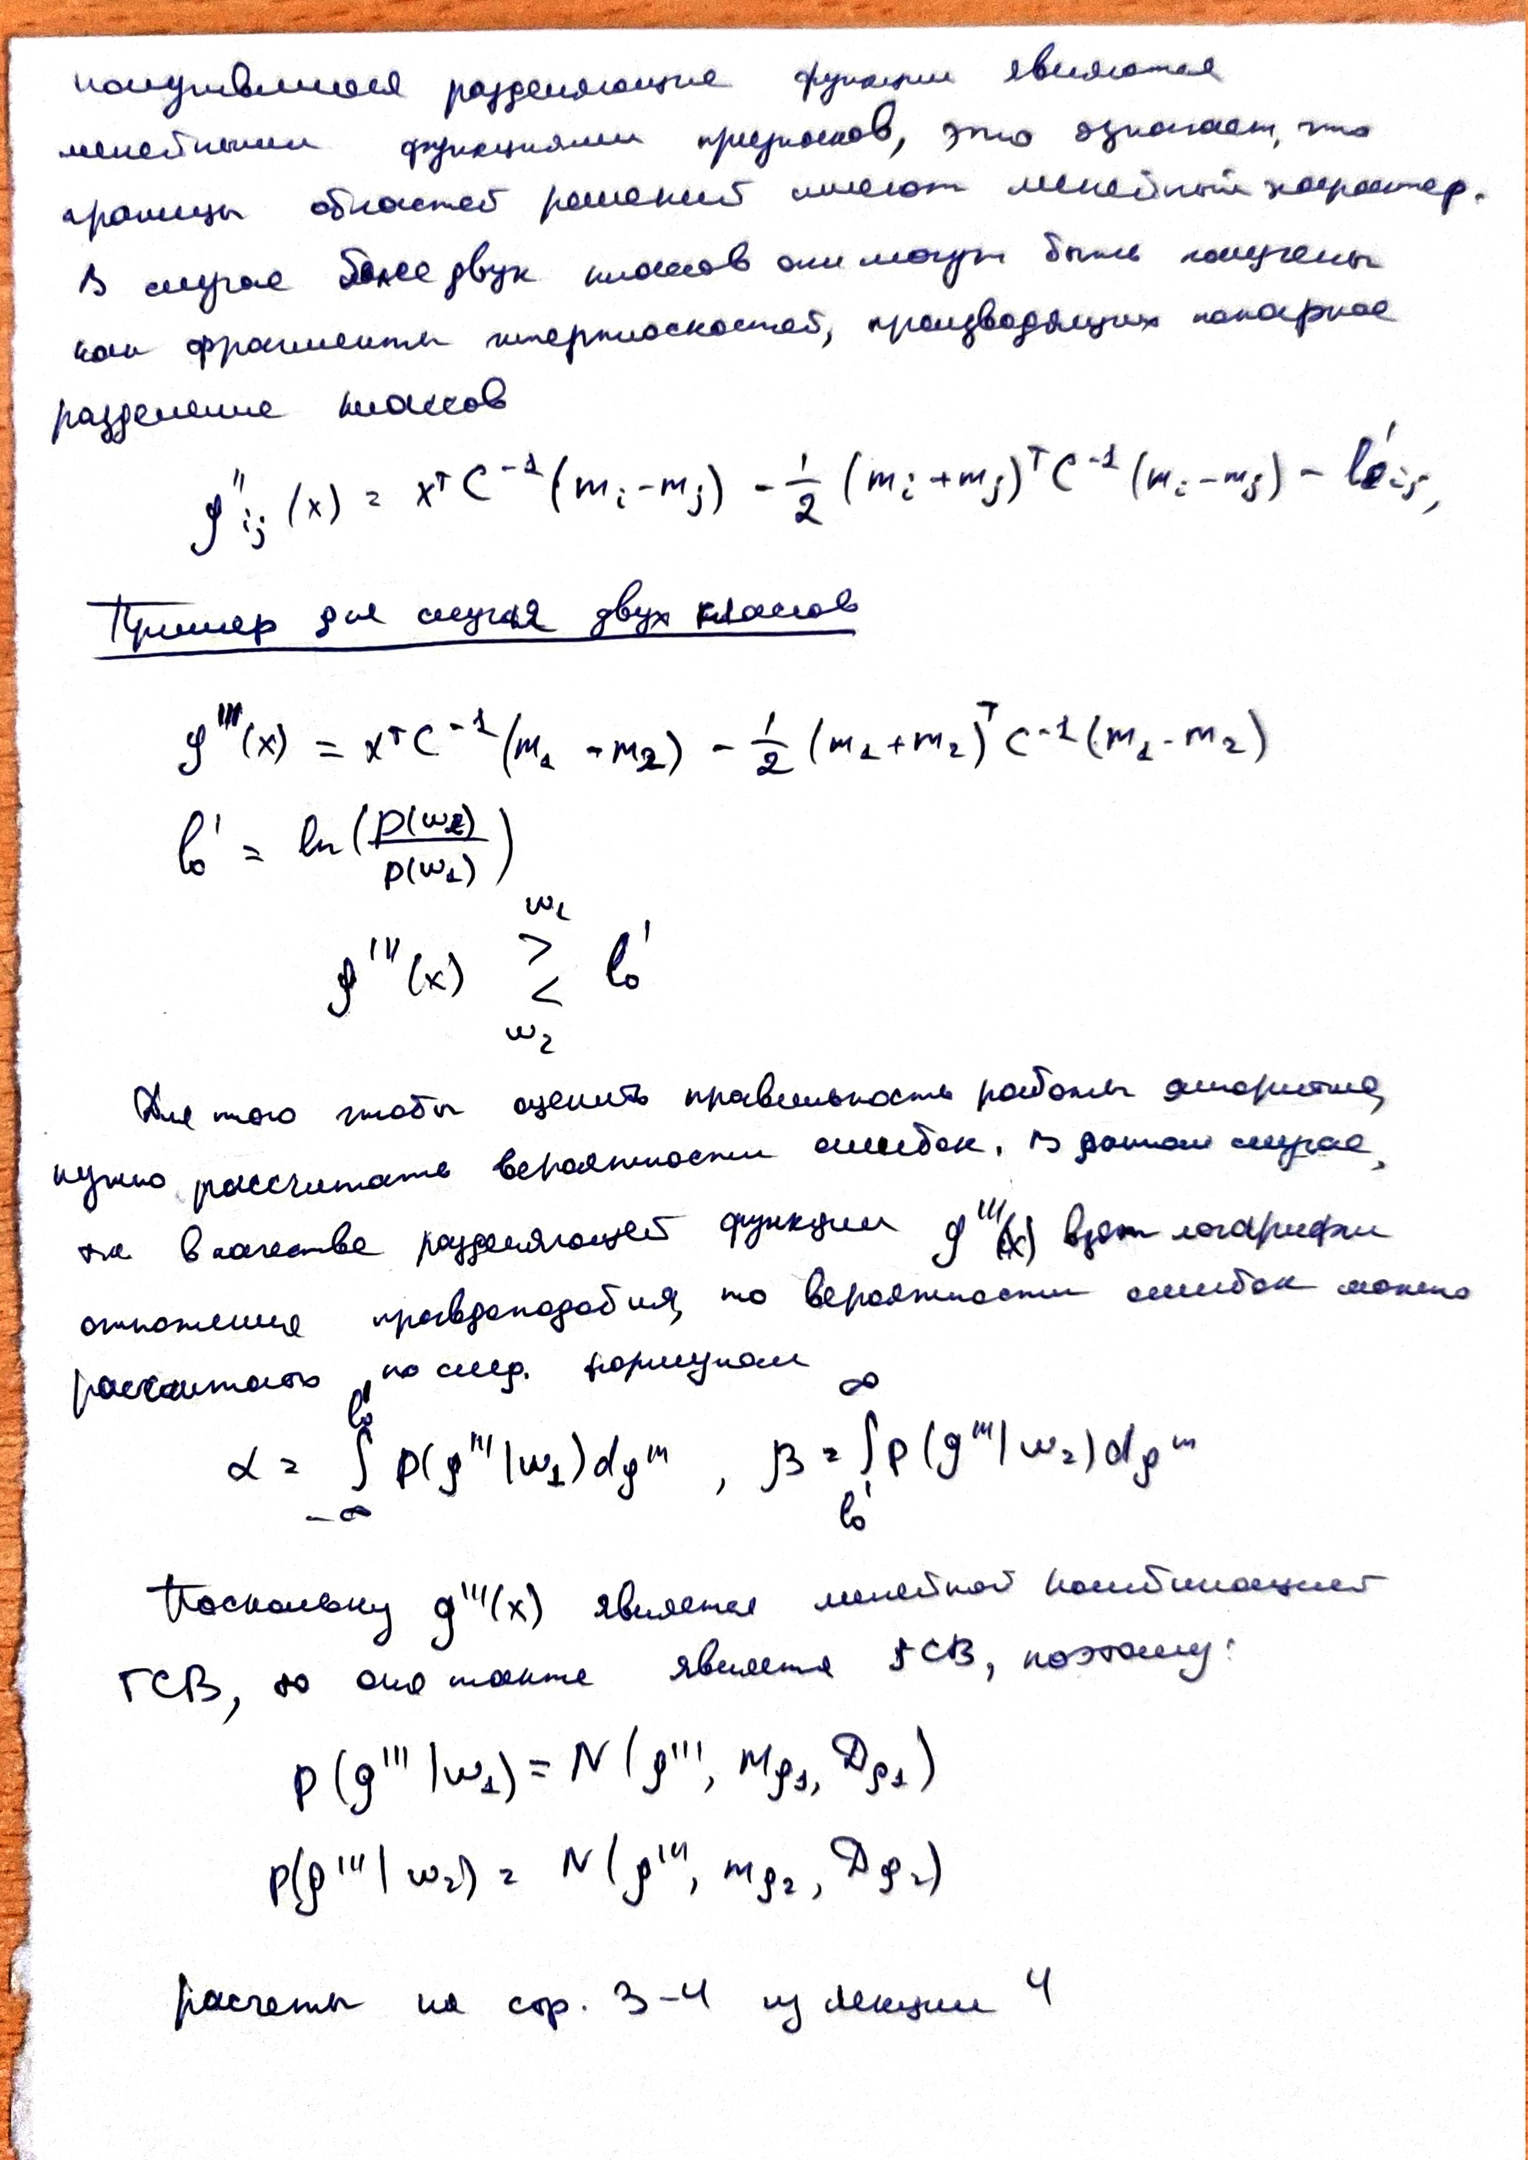 получившиеся разделяющие функции являются
линейными функциями признаков, это означает, что
границы областей решений имеют линейный характер.
В случае более двух классов они могут быть получены
как фрагменты гиперплоскостей, производящих попарное
разделение классов
g''ij (x) = xᵀ C⁻¹ (mi - mj) - 1/2 (mi + mj)ᵀ C⁻¹ (mi - mj) - l0'ij,
Пример для случая двух классов
g'''(x) = xᵀ C⁻¹ (m1 - m2) - 1/2 (m1 + m2)ᵀ C⁻¹ (m1 - m2)
l0' = ln (p(w2)/p(w1))
w1
g'''(x) > < l0'
w2
Для того чтобы оценить правильность работы алгоритма,
нужно рассчитать вероятности ошибок. В данном случае,
т.к в качестве разделяющей функции g'''(x) взят логарифм
отношения правдоподобия, то вероятности ошибок можно
рассчитать по след. формулам
α = ∫_{-∞}^{l0'} p(g'''|w1) dg''' , β = ∫_{l0'}^{∞} p(g'''|w2) dg'''
Поскольку g'''(x) является линейной комбинацией
ГСВ, то она также является ГСВ, поэтому:
p(g'''|w1) = N(g''', mg1, Dg1)
p(g'''|w2) = N(g''', mg2, Dg2)
расчеты на стр. 3-4 из лекции 4